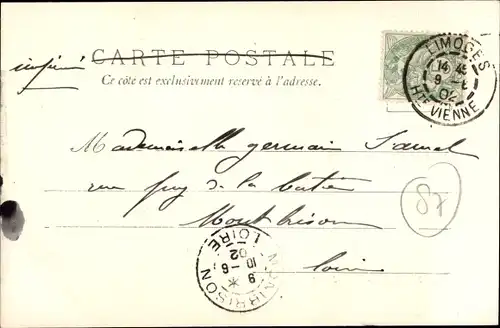 CARTE POSTALE
imprimé
Ce côté est exclusivement réservé à l'adresse.
LIMOGES
14 45
9 -8
02
HTE VIENNE
Mademoiselle germain
rue puy de la
Montbrison
Loire
87
MONTBRISON
9
10 -8
02
LOIRE